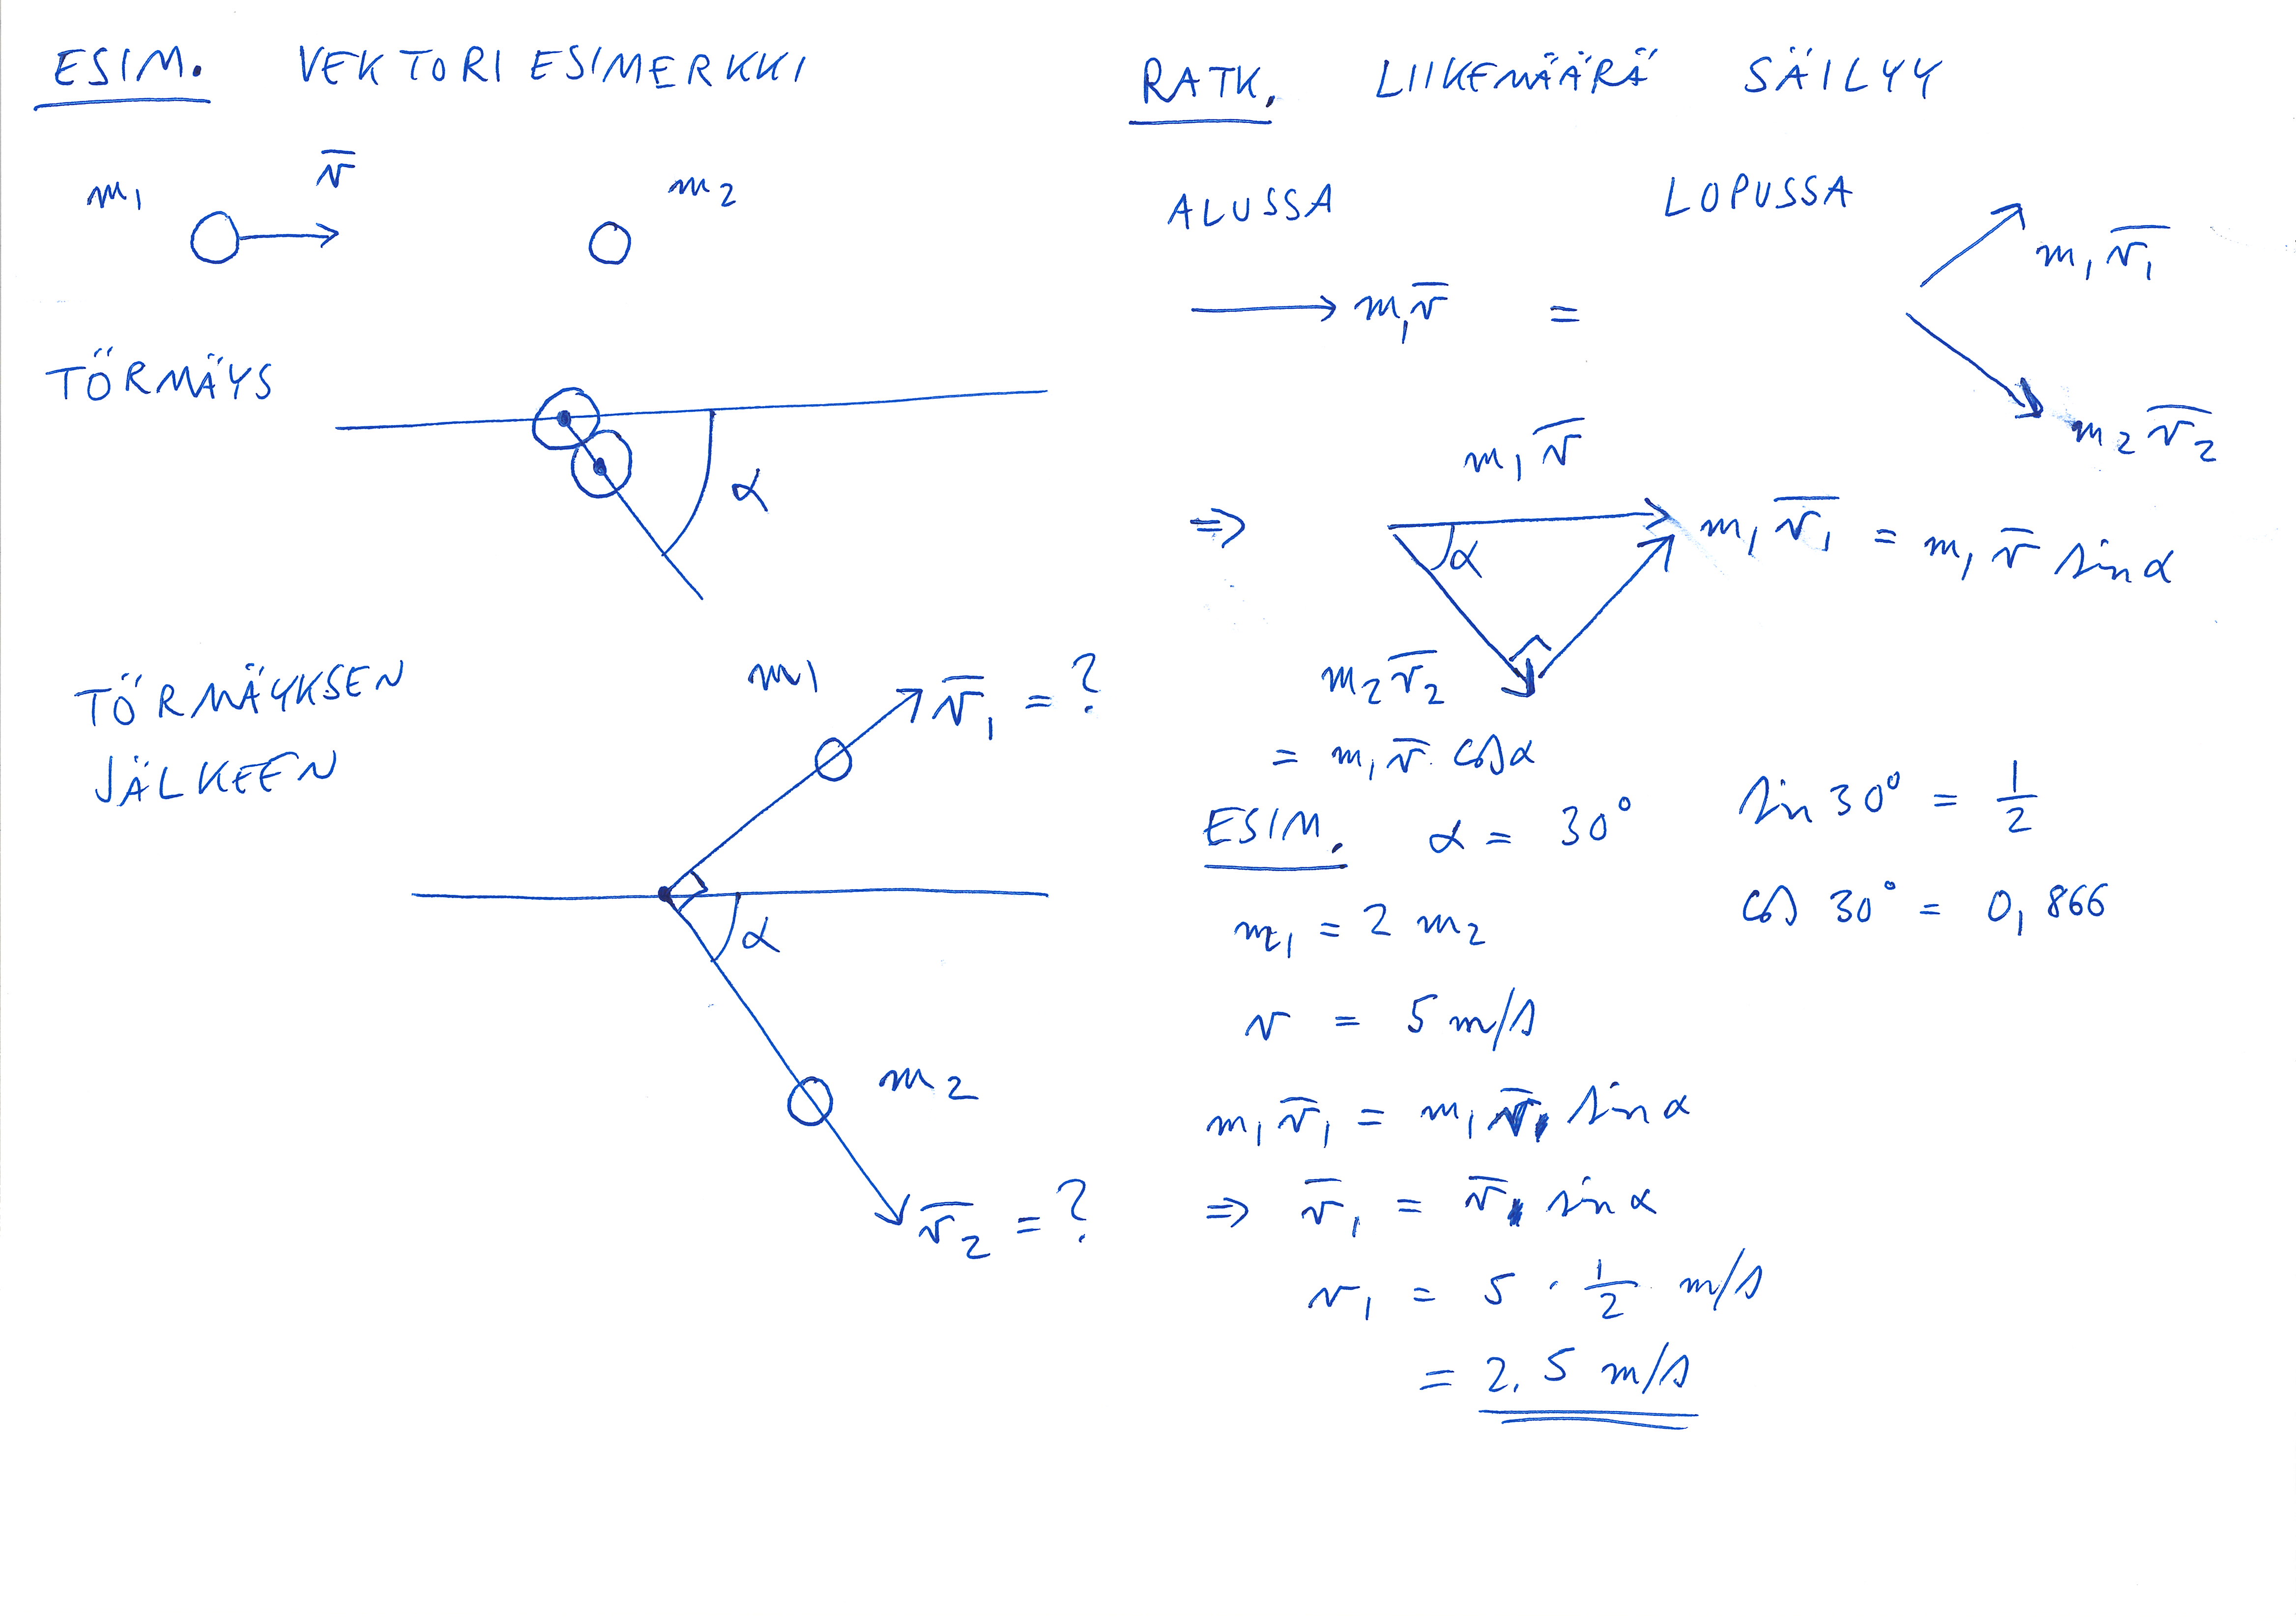 ESIM. VEKTORI ESIMERKKI
m₁ v̅ m₂
TÖRMÄYS
α
TÖRMÄYKSEN
JÄLKEEN
m₁
v̅₁ = ?
α
m₂
v̅₂ = ?
RATK. LIIKEMÄÄRÄ SÄILYY
ALUSSA LOPUSSA
m₁v̅ = m₁v̅₁
m₂v̅₂
m₁v̅
⇒ α m₁v̅₁ = m₁v̅ sin α
m₂v̅₂
= m₁v̅ cos α
ESIM. α = 30° sin 30° = 1/2
m₁ = 2 m₂ cos 30° = 0,866
v = 5 m/s
m₁v̅₁ = m₁v̅ sin α
⇒ v̅₁ = v̅ sin α
v₁ = 5 · 1/2 m/s
= 2,5 m/s